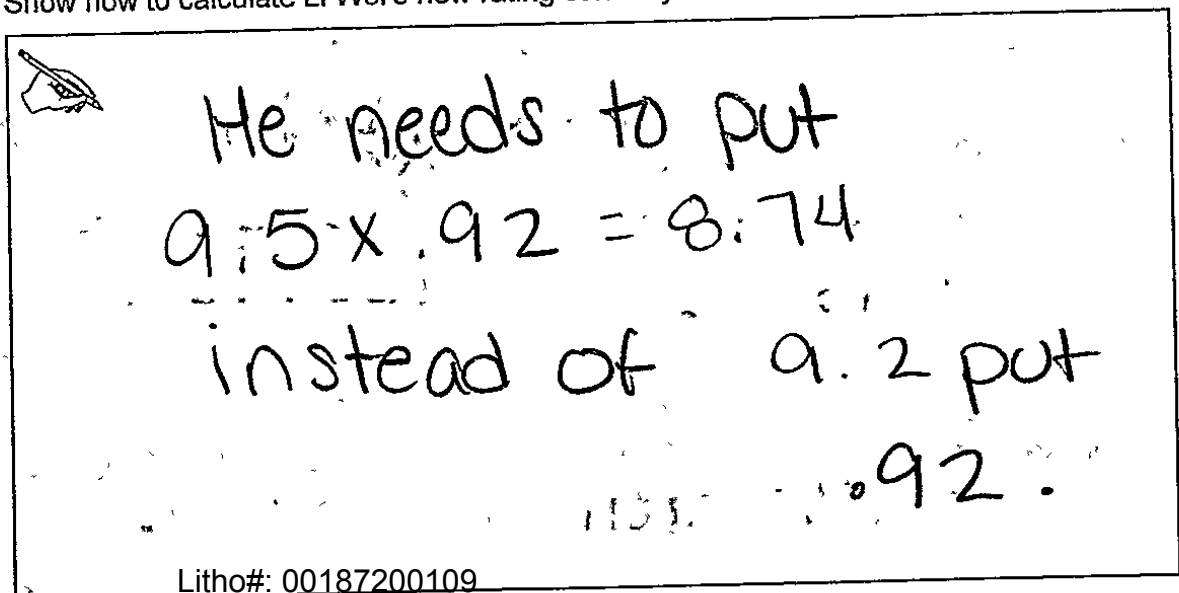 Show how to calculate
He needs to put
9.5 x .92 = 8.74
instead of 9.2 put
.92.
Litho#: 00187200109